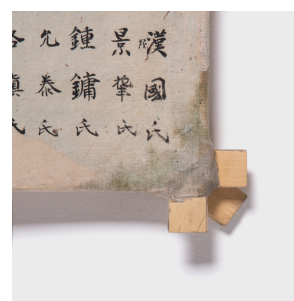 漢國氏
景鞏氏
鍾鏞氏
允泰氏
氏